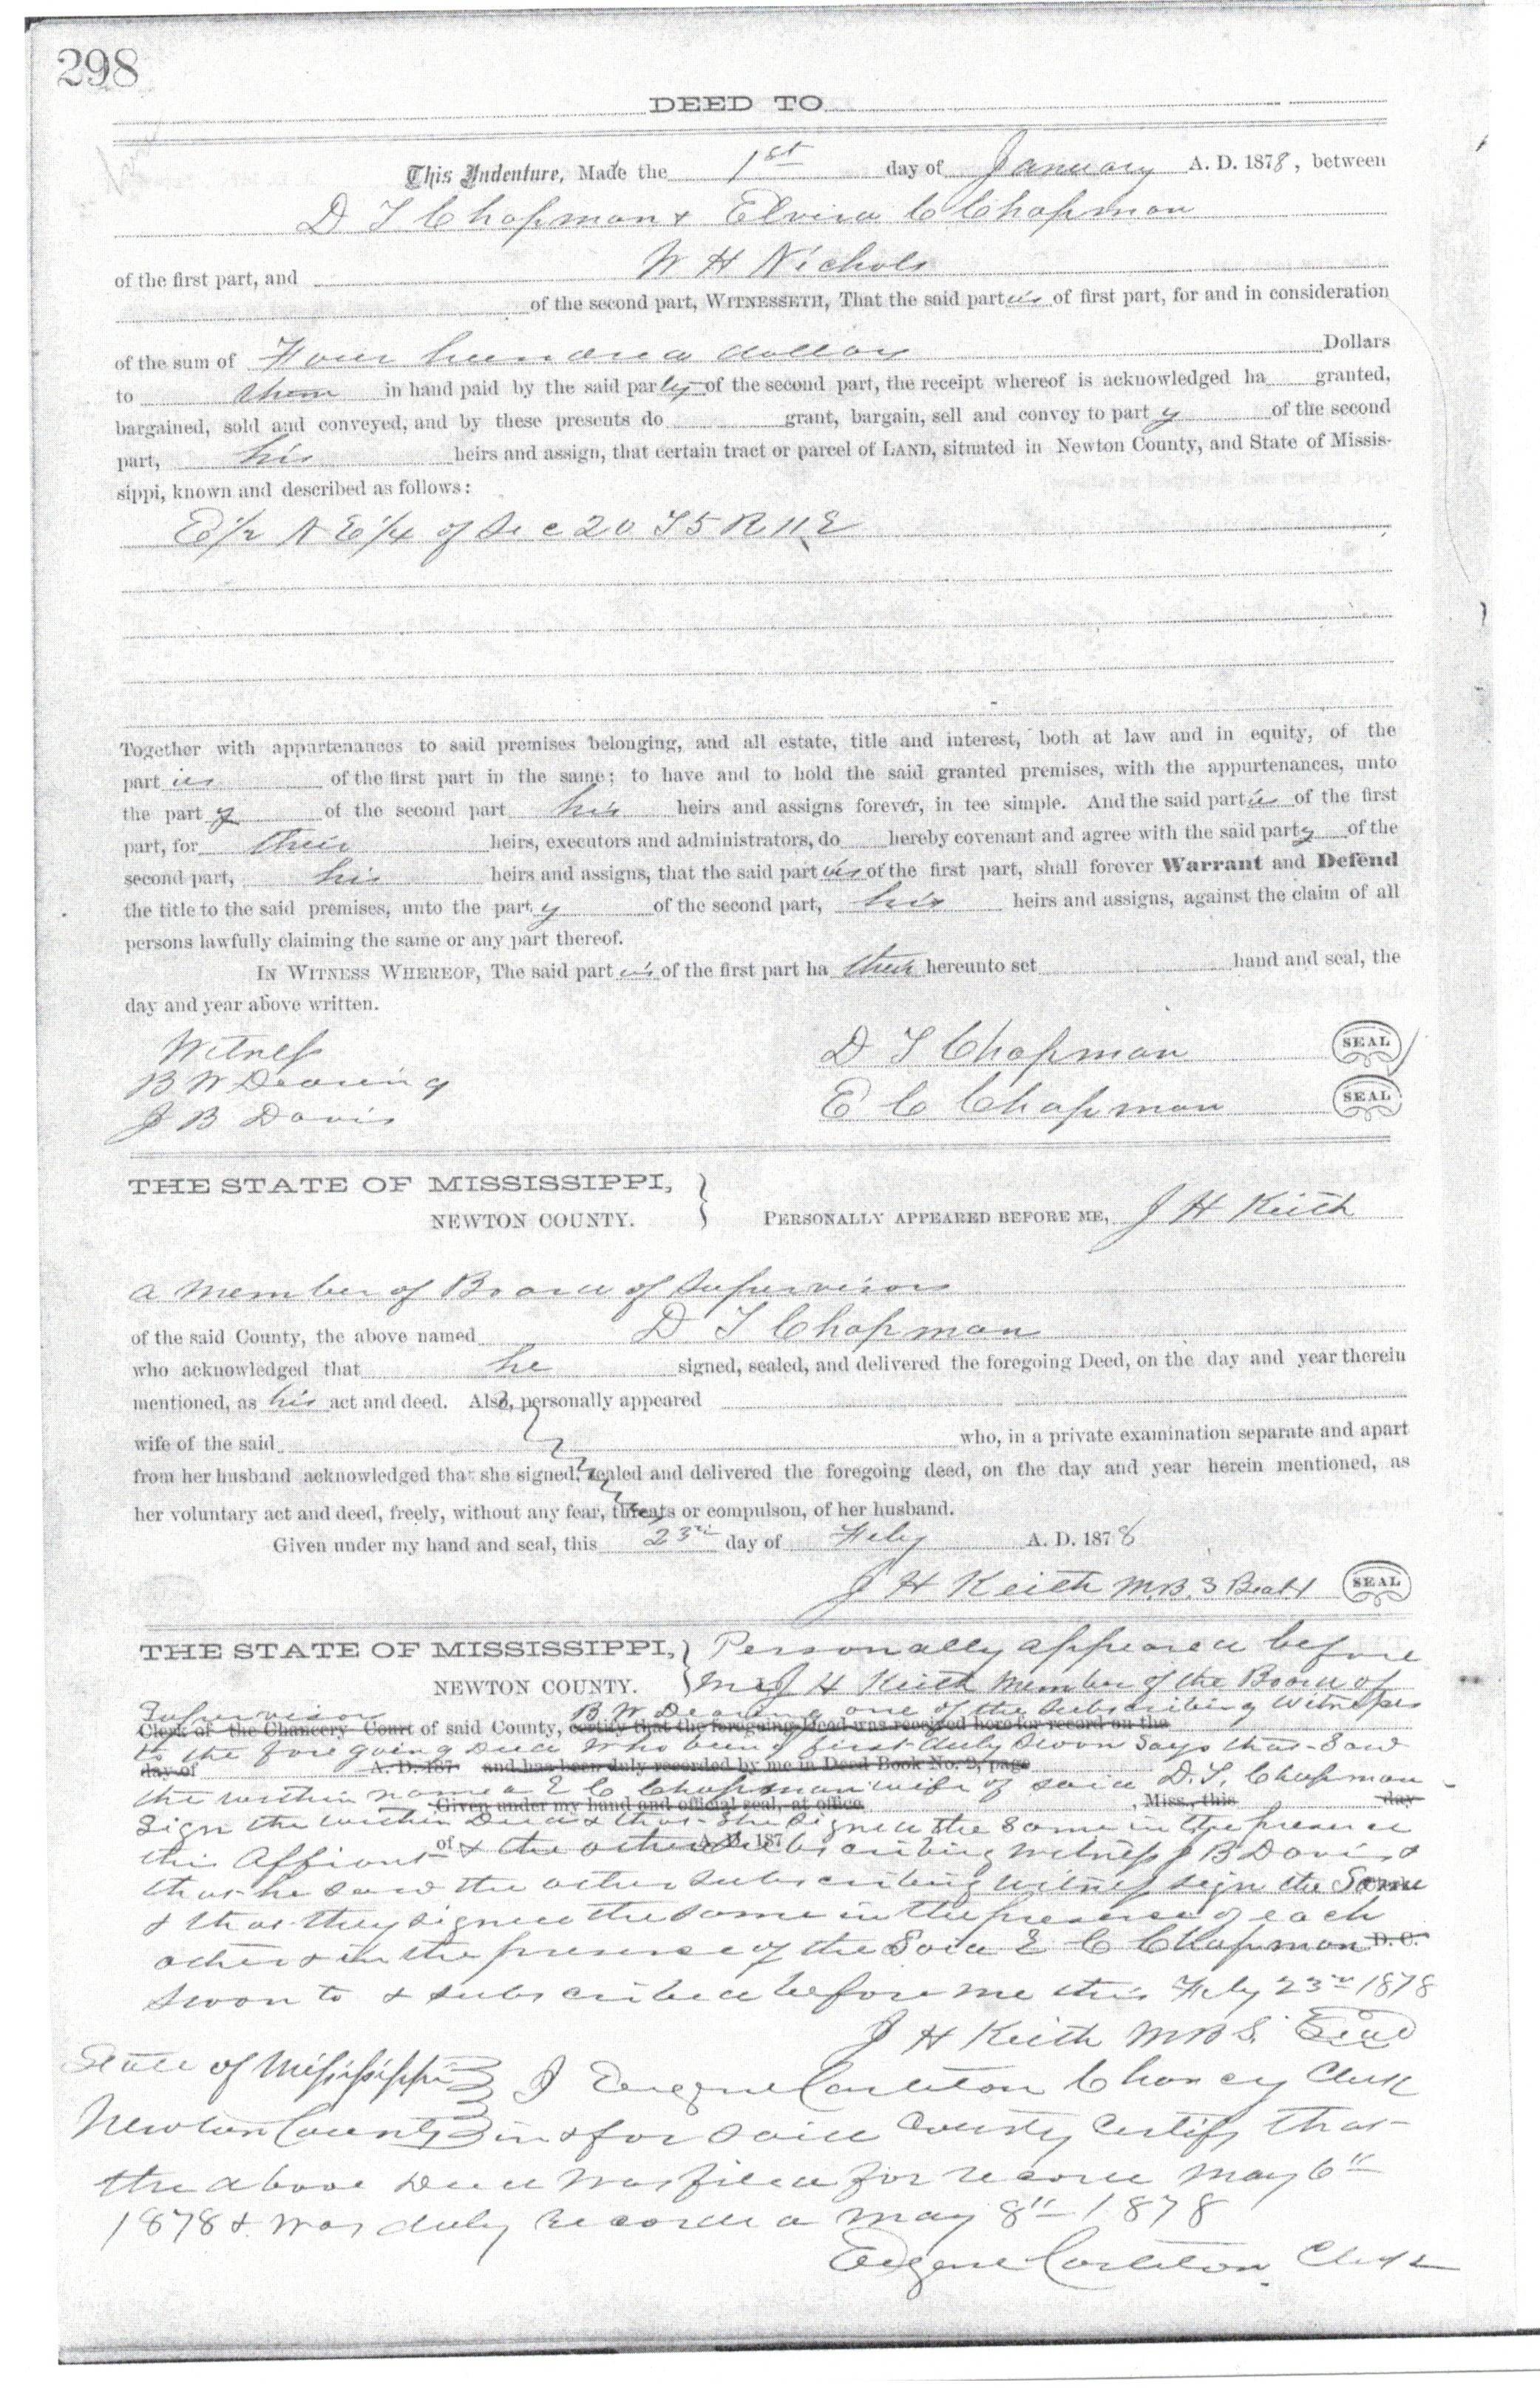 298
DEED TO
This Indenture, Made the 1st day of January A. D. 1878, between
D T Chapman & Elvira C Chapman
of the first part, and W H Nichols
of the second part, WITNESSETH, That the said parties of first part, for and in consideration
of the sum of Four hundred dollars Dollars
to them in hand paid by the said party of the second part, the receipt whereof is acknowledged ha granted,
bargained, sold and conveyed, and by these presents do grant, bargain, sell and convey to part y of the second
part, his heirs and assign, that certain tract or parcel of LAND, situated in Newton County, and State of Missis-
sippi, known and described as follows:
E 1/2 N E 1/4 of Sec 20 T5 R 11 E
Together with appurtenances to said premises belonging, and all estate, title and interest, both at law and in equity, of the
part ies of the first part in the same; to have and to hold the said granted premises, with the appurtenances, unto
the part y of the second part his heirs and assigns forever, in tee simple. And the said parties of the first
part, for their heirs, executors and administrators, do hereby covenant and agree with the said party of the
second part, his heirs and assigns, that the said part ies of the first part, shall forever Warrant and Defend
the title to the said premises, unto the part y of the second part, his heirs and assigns, against the claim of all
persons lawfully claiming the same or any part thereof.
IN WITNESS WHEREOF, The said part ies of the first part ha their hereunto set hand and seal, the
day and year above written.
Witness
D T Chapman SEAL
B W Dearing
E C Chapman SEAL
J B Davis
THE STATE OF MISSISSIPPI,
NEWTON COUNTY. PERSONALLY APPEARED BEFORE ME, J H Keith
a member of Board of Supervisors
of the said County, the above named D T Chapman
who acknowledged that he signed, sealed, and delivered the foregoing Deed, on the day and year therein
mentioned, as his act and deed. Also, personally appeared
wife of the said who, in a private examination separate and apart
from her husband acknowledged that she signed, sealed and delivered the foregoing deed, on the day and year herein mentioned, as
her voluntary act and deed, freely, without any fear, threats or compulson, of her husband.
Given under my hand and seal, this 23rd day of Feby A. D. 1878
J H Keith M.B.S Beat 1 SEAL
THE STATE OF MISSISSIPPI, Personally appeared before
NEWTON COUNTY. me J H Keith Member of the Board of
Supervisors B W Dearing one of the Subscribing Witnesses
Clerk of the Chancery Court of said County, certify that the foregoing Deed was received here for record on the
to the foregoing Deed who being first duly Sworn Says that Saw
day of A. D. 187 and has been duly recorded by me in Deed Book No. 2, page
the within named E C Chapman wife of said D. T. Chapman
Given under my hand and official seal, at office , Miss., this day
Sign the within Deed & that She Signed the Same in the presence
of A. D. 187
this Affiant & the other Subscribing witness J B Davis &
that he saw the other subscribing witness sign the Same
& that they signed the same in the presence of each
other & in the presence of the Said E C Chapman D. C.
Sworn to & subscribed before me this Feby 23rd 1878
J H Keith M B S. Seal
State of Mississippi I Eugene Carleton Chancy Clerk
Newton County in & for said County Certify that
the above Deed was filed for record May 6th
1878 & was duly recorded May 8th 1878
Eugene Carleton Clerk